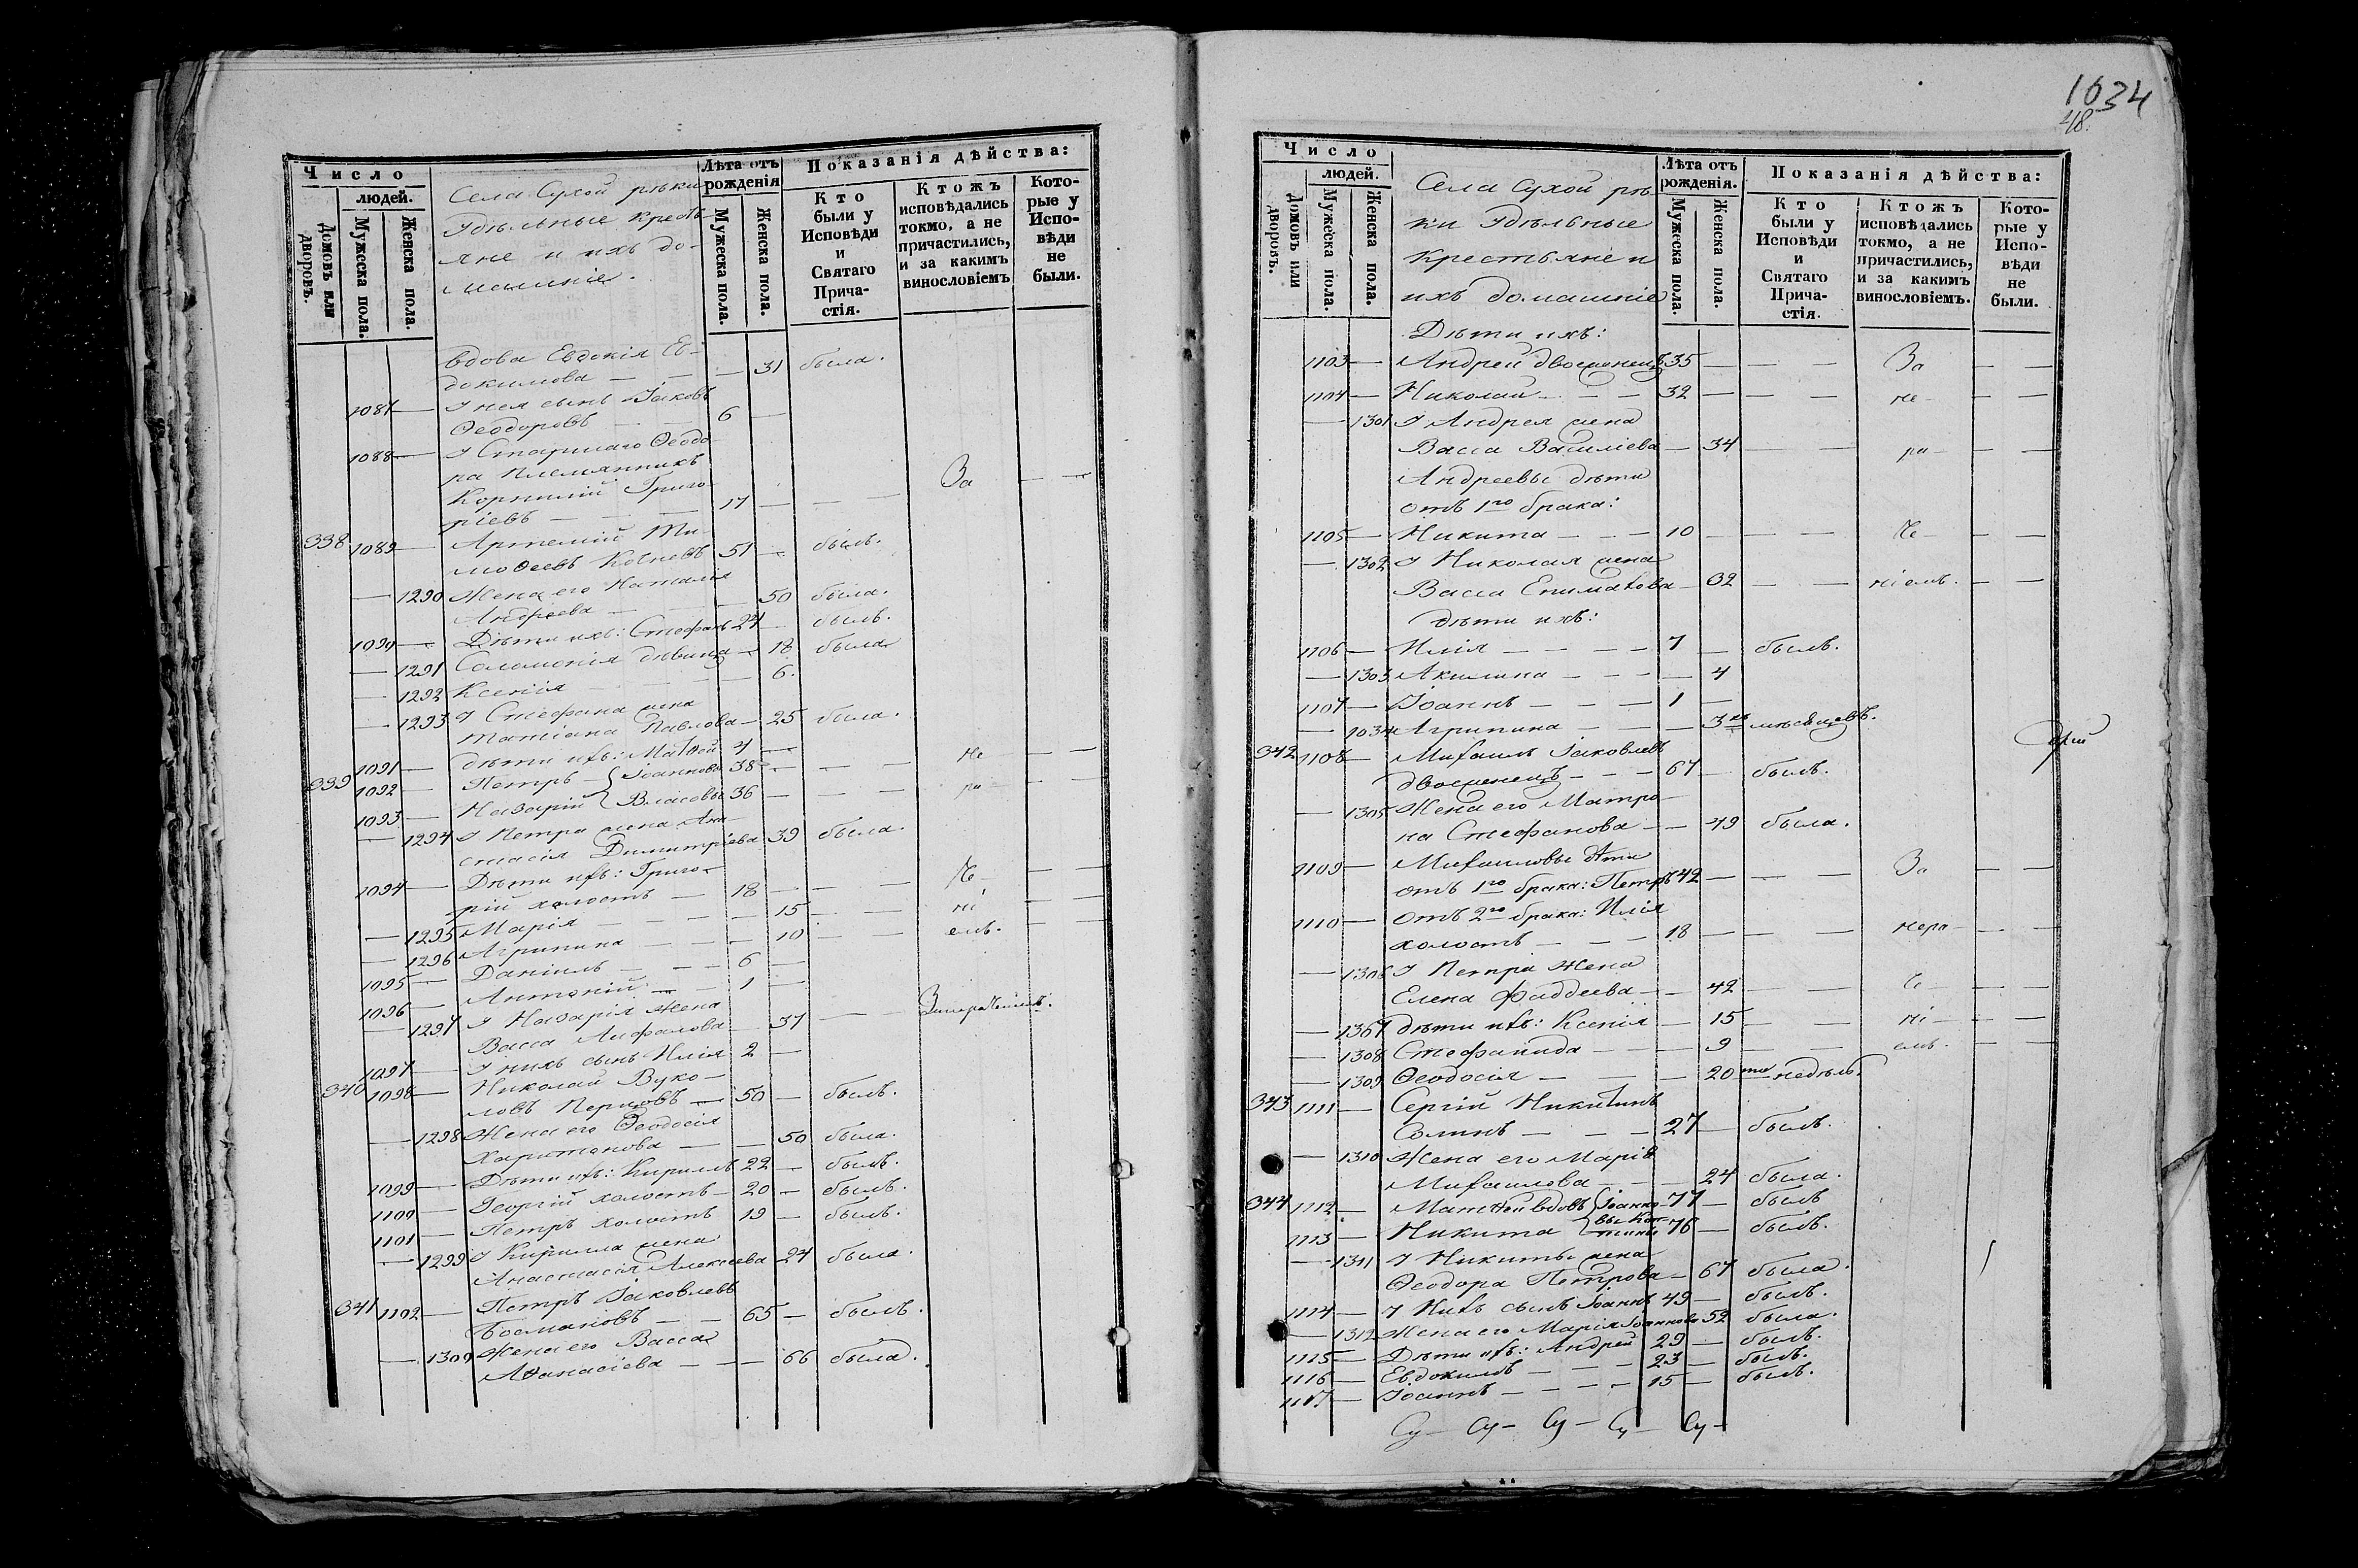 Число
людей.
Домовъ или дворовъ.
Мужеска пола.
Женска пола.
Села Сухой рѣки
Удѣльные кресть-
яне и ихъ до-
машніе.
Лѣта отъ рожденія
Мужеска пола.
Женска пола.
Показанія дѣйства:
Кто были у Исповѣди и Святаго Прича-стія.
Ктожъ исповѣдались токмо, а не причастились, и за какимъ винословіемъ
Кото-рые у Испо-вѣди не были.
вдова Евдокія Ев-
докимова — — — 31 была.
1087 — У нея сынъ Іаковъ
Ѳеодоровъ 6 —
1088 — У Старшаго Ѳеодо-
ра племянникъ
Корнилій Григо-
ріевъ — — — 17 — — — За — —
338 1089 — Артемій Ти-
моѳеевъ 51 — былъ.
— 1290 Жена его Наталія
Андреева — — 50 была.
1090 — Дѣти ихъ: Стефанъ 27 — былъ.
— 1291 Соломонія дѣвица — 18 была
— 1292 Ксенія — — — 6.
— 1293 У Стефана жена
Татіана Павлова — 25 была.
1091 — дѣти ихъ: Матѳей 4 —
339 1092 — Петръ — Іоанновы 38 — — — не — —
1093 — Назарій Власовы 36 — — — ра — —
— 1294 У Петра жена Ана-
стасія Димитріева 39 была.
1094 — Дѣти ихъ: Григо-
рій холостъ — 18 — — — че — —
— 1295 Марія — — — 15 — — ні — —
— 1296 Агрипина — — — 10 — — емъ. — —
1095 — Даніилъ — — — 6 —
1096 — Антоній — — 1 —
— 1297 У Назарія жена
Васса Анфалова — 37 — — Занераченіемъ.
1097 — У нихъ сынъ Илія 2 —
340 1098 — Николай Вуко-
ловъ Перцовъ — 50 — былъ.
— 1298 Жена его Ѳеодосія
Харитонова — — 50 была.
1099 — Дѣти ихъ: Кириллъ 22 — былъ.
1100 — Георгій холостъ — 20 — былъ.
1101 — Петръ холостъ 19 — былъ.
— 1299 У Кирилла жена
Анастасія Алексеева — 24 была.
341 1102 — Петръ Іаковлевъ
Босмановъ — — 65 — былъ.
— 1300 Жена его Васса
Аѳанасіева — — — 66 была.
1634
48.
Число
людей.
Домовъ или дворовъ.
Мужеска пола.
Женска пола.
Села Сухой рѣ-
ки Удѣльные
Крестьяне и
ихъ домашніе
Лѣта отъ рожденія.
Мужеска пола.
Женска пола.
Показанія дѣйства:
Кто были у Исповѣди и Святаго Прича-стія.
Ктожъ исповѣдались токмо, а не причастились, и за какимъ винословіемъ.
Кото-рые у Испо-вѣди не были.
Дѣти ихъ:
1103 — Андрей двоеженецъ 35 — — — За — —
1104 — Николай — — — 32 — — — не — —
— 1301 У Андрея жена
Васса Василіева — 34 — — ра — —
Андреевы дѣти
отъ 1го брака:
1105 — Никита — — — 10 — — — че — —
— 1302 У Николая жена
Васса Епимахова — 32 — — ніемъ. — —
дѣти ихъ:
1106 — Илія — — — — 7 — былъ.
— 1303 Акилина — — — — 4
1107 — Іоаннъ — — — 1 —
— 1034 Агрипина — — — 3хъ мѣсяцевъ.
342 1108 — Михаилъ Іаковлевъ
двоеженецъ — — — 67 — былъ.
— 1305 Жена его Матро-
на Стефанова — — 49 была.
1109 — Михаиловы дѣти
отъ 1го брака: Петръ 42 — — — За — —
1110 — Отъ 2го брака: Илія
холостъ — — — 18 — — — нера — —
— 1306 У Петра Жена
Елена Фаддеева — — 42 — — че — —
— 1307 дѣти ихъ: Ксенія — 15 — — ні — —
— 1308 Стефанида — — — 9 — — емъ. — —
— 1309 Ѳеодосія — — — 20ти недѣль.
343 1111 — Сергій Никитинъ
Сотинъ — — — 27 — былъ.
— 1310 Жена его Марія
Михаилова — — — 24 была.
344 1112 — Матѳей вдовъ Іоанно- 77 — былъ
1113 — Никита вы 76 — былъ.
— 1311 У Никиты жена
Ѳеодора Петрова — 67 была.
1114 — У Нихъ сынъ Іоаннъ 49 — былъ.
— 1312 Жена его Марія Іоаннова 52 была.
1115 — Дѣти ихъ: Андрей 29 — былъ.
1116 — Евдокимъ — — — 23 — былъ.
1117 — Іоаннъ — — — — 15 — былъ.